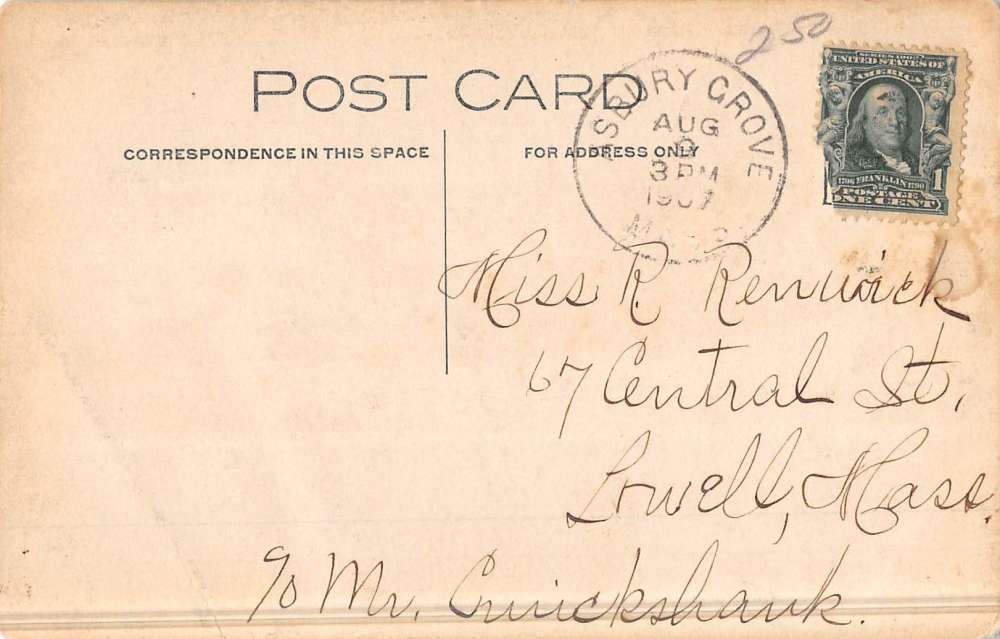 2 50
POST CARD
CORRESPONDENCE IN THIS SPACE
FOR ADDRESS ONLY
ASBURY GROVE
AUG
3 PM
1907
SERIES 1902
UNITED STATES OF
AMERICA
1706 FRANKLIN 1790
POSTAGE
1
ONE CENT
Miss R. Renwick
67 Central St,
Lowell, Mass.
c/o Mr. Cruickshank.